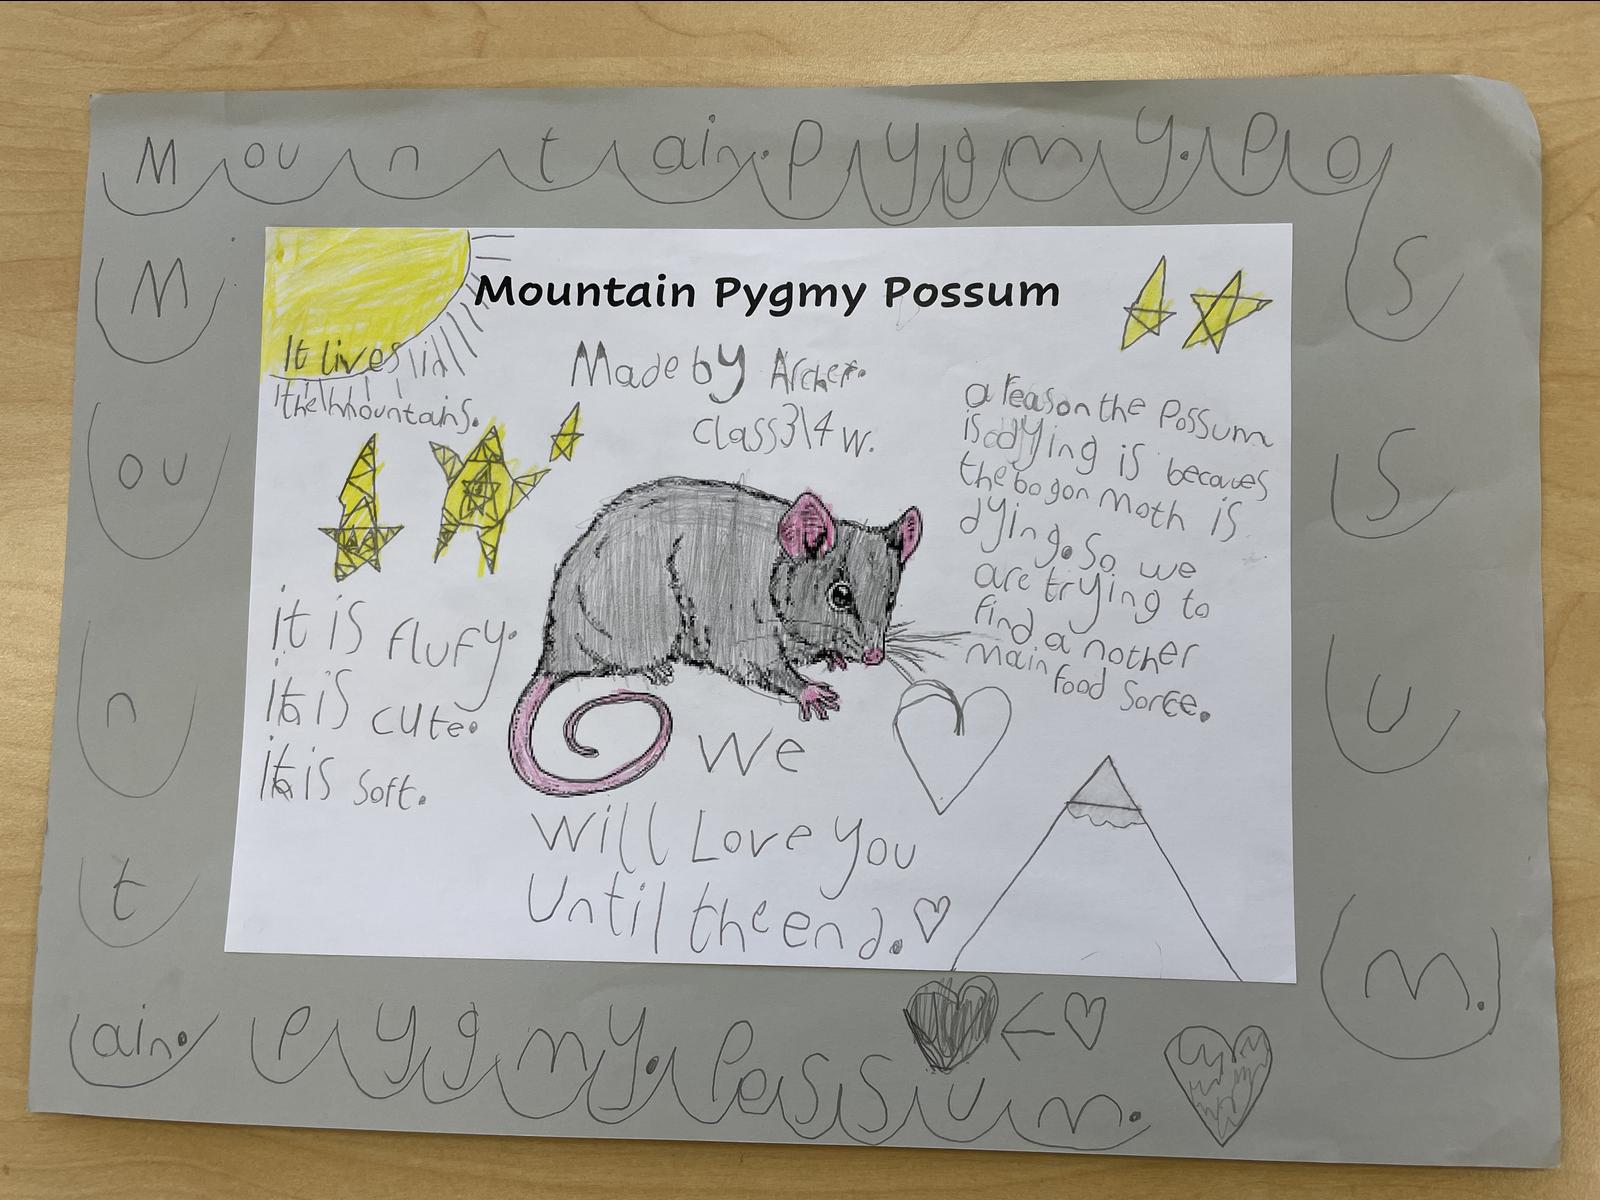 Mountain. Pygmy. Pos
s
u
m.
Mountain Pygmy Possum
Made by Archer.
class 3\4 w.
It lives in
the mountains.
it is flufy.
It is cute.
It is soft.
a reason the Possum
is dying is becaues
the bogon moth is
dying. So we
are trying to
find a nother
main food sorce.
we
will Love you
Until the end.
M
ou
n
t
ain. Pygmy. Possum.